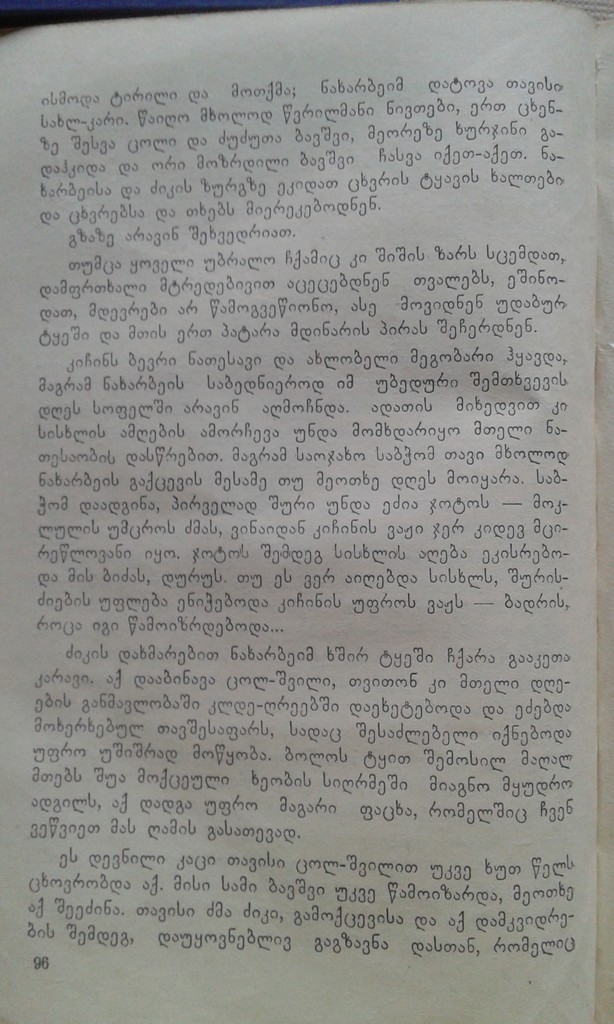 ისმოდა ტირილი და მოთქმა; ნახარბეიმ დატოვა თავისი
სახლ-კარი. წაიღო მხოლოდ წვრილმანი ნივთები, ერთ ცხენ-
ზე შესვა ცოლი და ძუძუთა ბავშვი, მეორეზე ხურჯინი გა-
დაჰკიდა და ორი მოზრდილი ბავშვი ჩასვა იქეთ-აქეთ. ნა-
ხარბეისა და ძიკის ზურგზე ეკიდათ ცხვრის ტყავის ხალთები
და ცხვრებსა და თხებს მიერეკებოდნენ.
გზაზე არავინ შეხვედრიათ.
თუმცა ყოველი უბრალო ჩქამიც კი შიშის ზარს სცემდათ,
დამფრთხალი მტრედებივით აცეცებდნენ თვალებს, ეშინო-
დათ, მდევრები არ წამოგვეწიონო, ასე მოვიდნენ უდაბურ
ტყეში და მთის ერთ პატარა მდინარის პირას შეჩერდნენ.
კიჩინს ბევრი ნათესავი და ახლობელი მეგობარი ჰყავდა,
მაგრამ ნახარბეის საბედნიეროდ იმ უბედური შემთხვევის
დღეს სოფელში არავინ აღმოჩნდა. ადათის მიხედვით კი
სისხლის ამღების ამორჩევა უნდა მომხდარიყო მთელი ნა-
თესაობის დასწრებით. მაგრამ საოჯახო საბჭომ თავი მხოლოდ
ნახარბეის გაქცევის მესამე თუ მეოთხე დღეს მოიყარა. საბ-
ჭომ დაადგინა, პირველად შური უნდა ეძია ჯოტოს — მოკ-
ლულის უმცროს ძმას, ვინაიდან კიჩინის ვაჟი ჯერ კიდევ მცი-
რეწლოვანი იყო. ჯოტოს შემდეგ სისხლის აღება ეკისრებო-
და მის ბიძას, დურუს. თუ ეს ვერ აიღებდა სისხლს, შურის-
ძიების უფლება ენიჭებოდა კიჩინის უფროს ვაჟს — ბადრის,
როცა იგი წამოიზრდებოდა...
ძიკის დახმარებით ნახარბეიმ ხშირ ტყეში ჩქარა გააკეთა
კარავი. აქ დააბინავა ცოლ-შვილი, თვითონ კი მთელი დღე-
ების განმავლობაში კლდე-ღრეებში დაეხეტებოდა და ეძებდა
მოხერხებულ თავშესაფარს, სადაც შესაძლებელი იქნებოდა
უფრო უშიშრად მოწყობა. ბოლოს ტყით შემოსილ მაღალ
მთებს შუა მოქცეული ხეობის სიღრმეში მიაგნო მყუდრო
ადგილს, აქ დადგა უფრო მაგარი ფაცხა, რომელშიც ჩვენ
ვეწვიეთ მას ღამის გასათევად.
ეს დევნილი კაცი თავისი ცოლ-შვილით უკვე ხუთ წელს
ცხოვრობდა აქ. მისი სამი ბავშვი უკვე წამოიზარდა, მეოთხე
აქ შეეძინა. თავისი ძმა ძიკი, გამოქცევისა და აქ დამკვიდრე-
ბის შემდეგ, დაუყოვნებლივ გაგზავნა დასთან, რომელიც
96